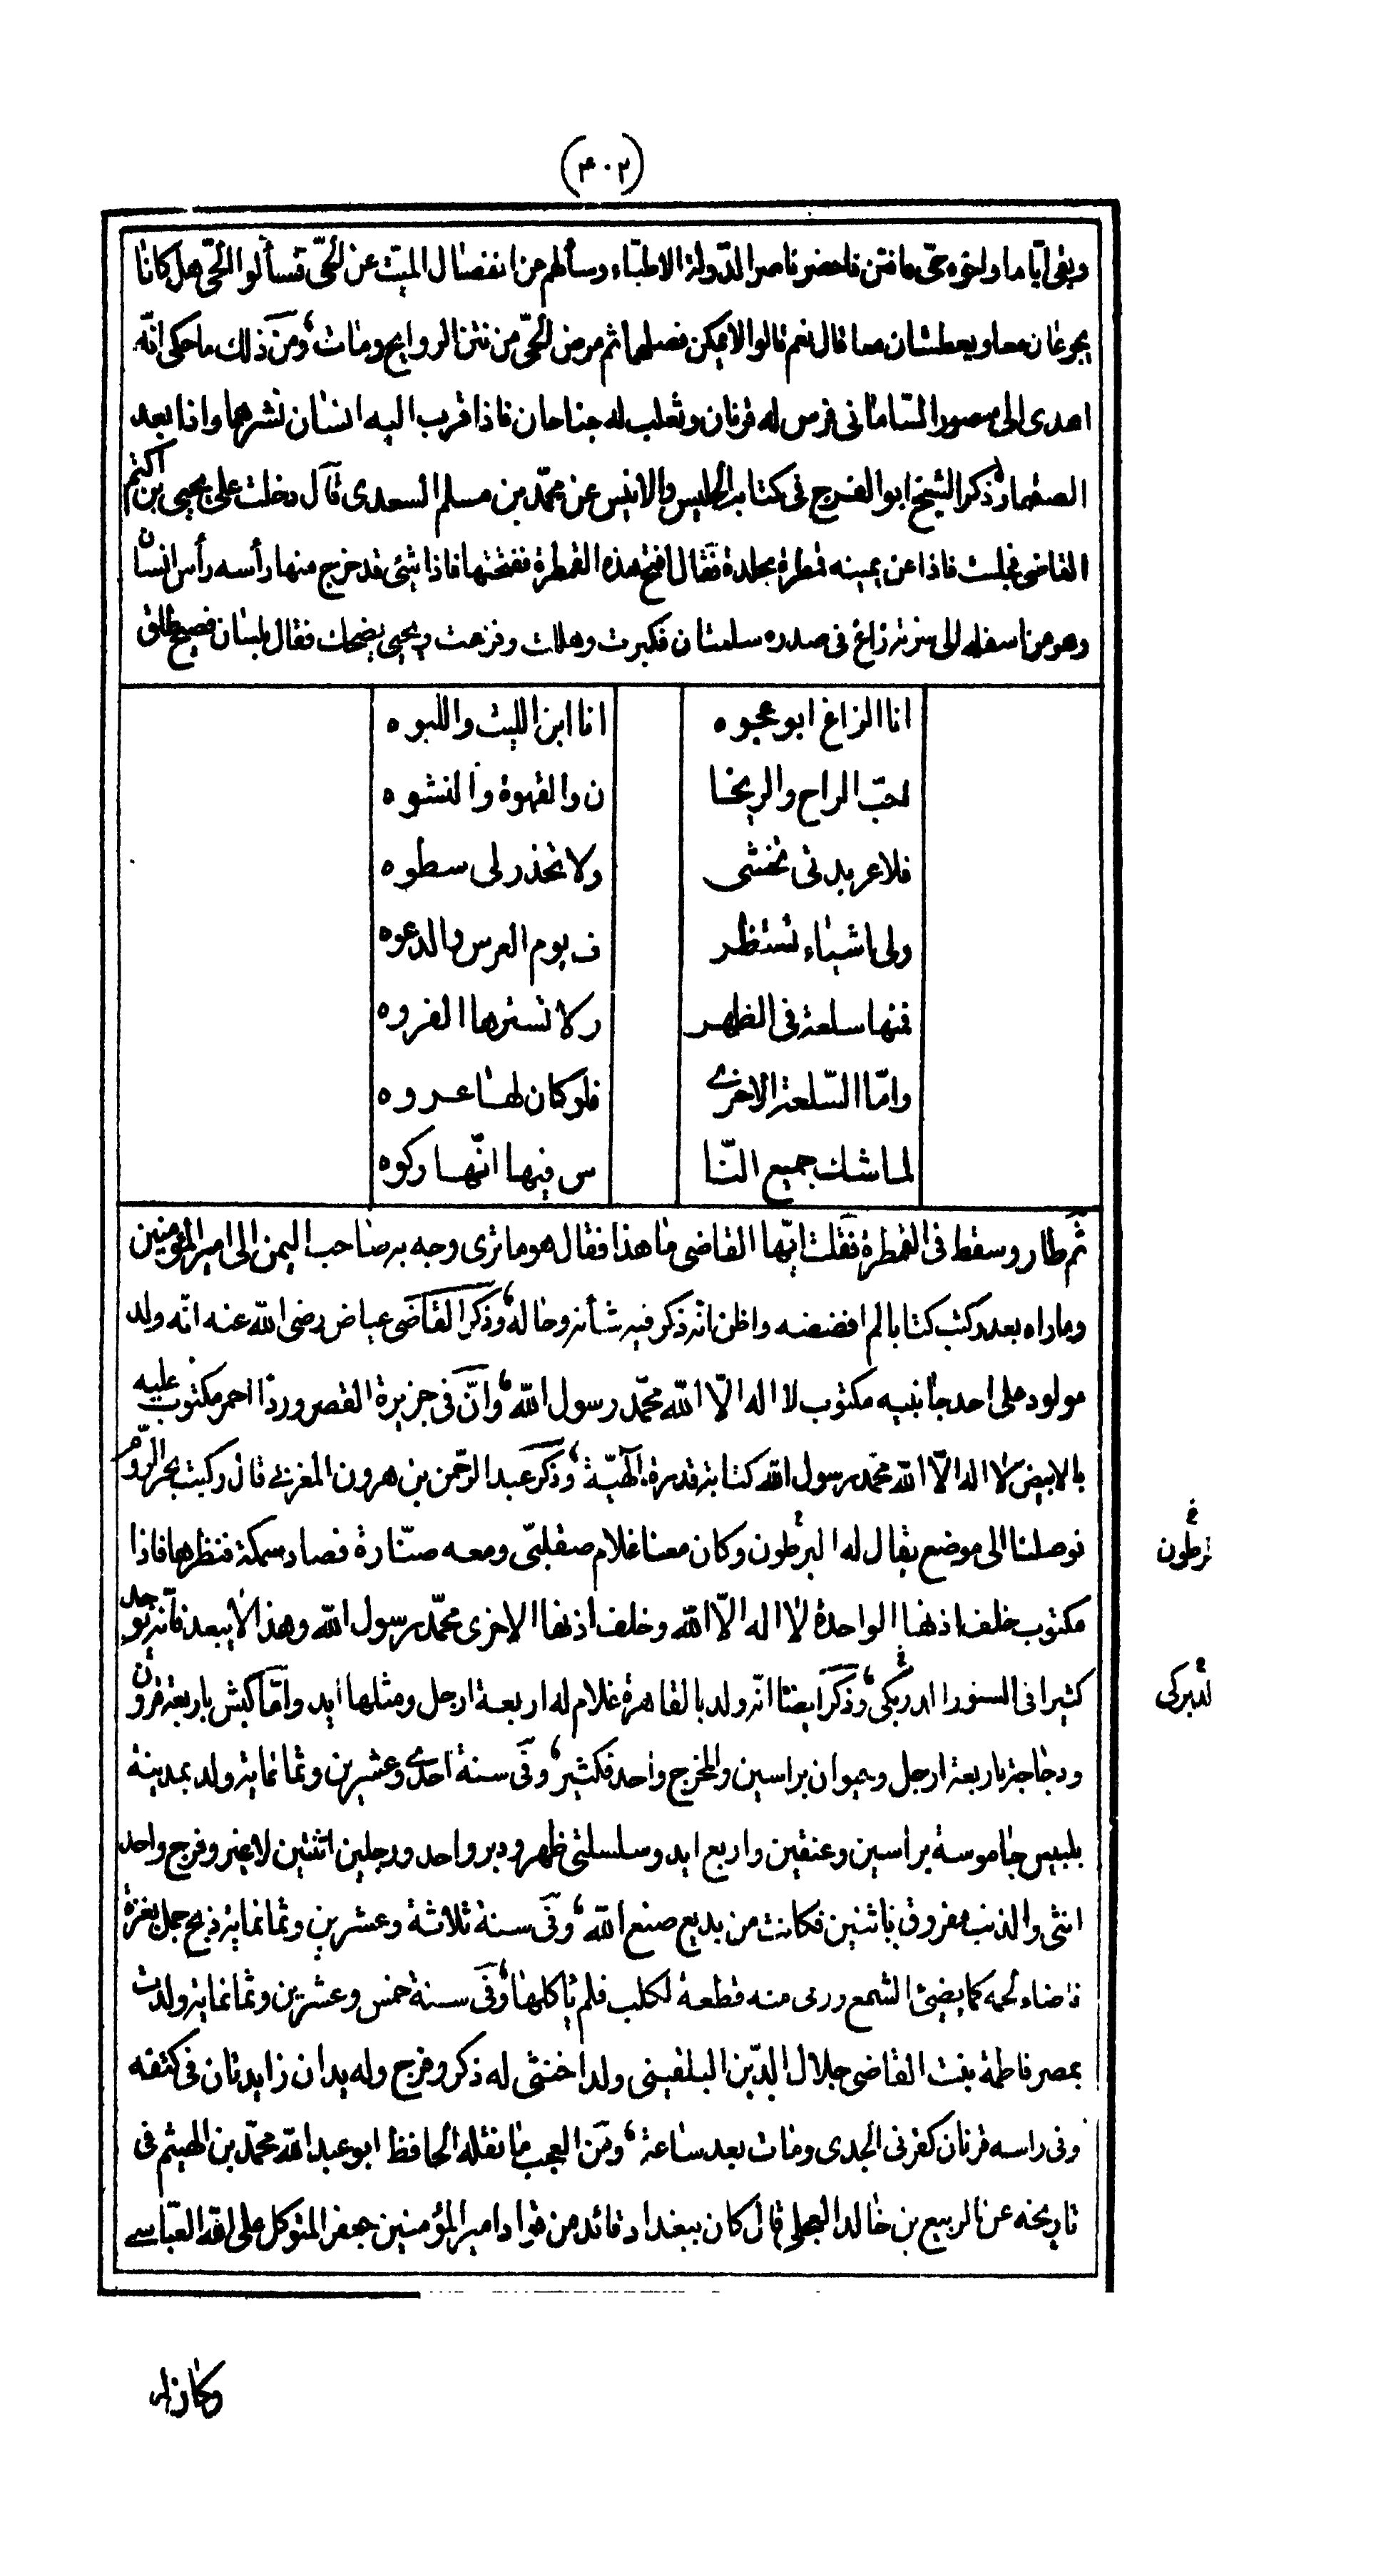 (٤٠٢)
وبقى اياما واخوه حى فانتن فاحضر ناصر الدولة الاطباء وسألهم عن انفصال الميت عن الحىّ فسألوا الحىّ هل كانا
يجوعان معا ويعطشان معا قال نعم قالوا لا يمكن فصلهما ثم مرض الحىّ من نتن الروايح ومات ومن ذلك ما حكى انّه
اهدى الى منصور السامانى فرس له قرنان وثعلب له جناحان فاذا قرب اليه انسان نشرهما واذا بعد
الصقهما وذكر الشيخ ابو الفرج فى كتاب الجليس والانيس عن محمّد بن مسلم السعدى قال دخلت على يحيى بن اكثم
القاضى فجلست فاذا عن يمينه قمطرة مجلدة فقال افتح هذه القمطرة ففتحتها فاذا شئ قد خرج منها رأسه رأس انسان
وهو من اسفله الى سرته زاغ فى صدره سلعتان فكبرت وهللت وفزعت ويحيى يضحك فقال بلسان فصيح طلق
انا الزاغ ابو عجوه انا ابن الليث واللبوه
احبّ الراح والريحا ن والقهوة والنشوه
فلا عربدتى تخشى ولا تحذر لى سطوه
ولى اشياء تستظر ف يوم العرس والدعوه
فمنها سلعة فى الظهر لا تسترها الفروه
وامّا السّلعة الاخرى فلو كان لها عروه
لما شك جميع النّا س فيها انّها ركوه
ثم طار وسقط فى القمطرة فقلت ايّها القاضى ما هذا فقال هو ما ترى وجه به صاحب اليمن الى امير المؤمنين
وما راه بعد وكتب كتابا لم افضضه واظن انّه ذكر فيه شأنه وحاله وذكر القاضى عياض رضى الله عنه انّه ولد
مولود على احد جانبيه مكتوب لا اله الّا الله محمّد رسول الله وانّ فى جزيرة القصر وردا احمر مكتوب عليه
بالابيض لا اله الّا الله محمّد رسول الله كتابة قدرة الهيّة وذكر عبد الرحمن بن هرون المغربى قال ركبت بحر الرّوم
فوصلنا الى موضع يقال له البرطون وكان معنا غلام صقلبىّ ومعه صنّارة فصاد سمكة فنظرها فاذا
مكتوب خلف اذنها الواحدة لا اله الّا الله وخلف اذنها الاخرى محمّد رسول الله وهذا لا يبعد فانّه يوجد
كثيرا فى السنور وذكر ايضا انّه ولد بالقاهرة غلام له اربعة ارجل ومثلها ايد وامّا كبش باربعة قرون
ودجاجة باربعة ارجل وحيوان براسين والمخرج واحد فكثير وفى سنة احدى وعشرين وثمانماية ولد بمدينة
بلبيس جاموسة براسين وعنقين واربع ايد وسلسلتى ظهر ودبر واحد ورجلين اثنتين لا غير وفرج واحد
انثى والذنب مفروق باثنين فكانت من بديع صنع الله وفى سنة ثلاثة وعشرين وثمانماية ذبح جمل بغزة
فاضاء لحمه كما يضئ الشمع ورمى منه قطعة لكلب فلم ياكلها وفى سنة خمس وعشرين وثمانماية ولدت
بمصر فاطمة بنت القاضى جلال الدّين البلقينى ولدا خنثى له ذكر وفرج وله يدان زايدتان فى كتفه
وفى راسه قرنان كقرنى الجدى ومات بعد ساعة ومن العجب ما نقله الحافظ ابو عبد الله محمّد بن الهيثم فى
تاريخه عن الربيع بن خالد البجلى قال كان ببغداد قائد من قواد امير المؤمنين جعفر المتوكل على الله العبّاسى
وكان له